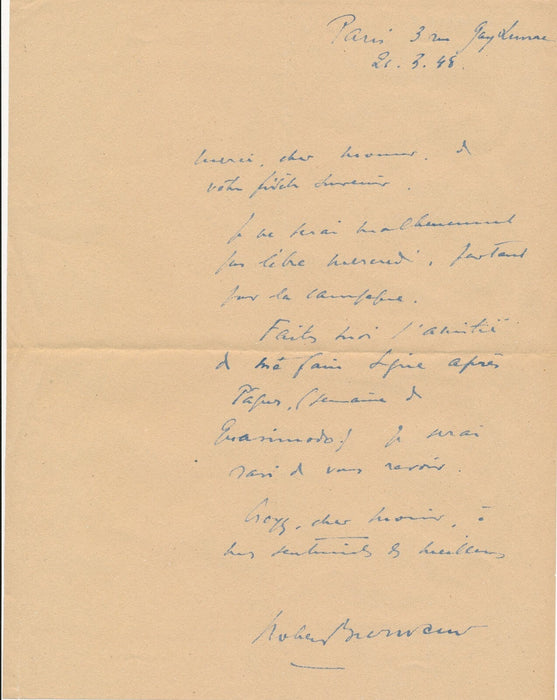 Paris 3 rue Gay Lussac
21. 3. 48.
Merci, cher monsieur, de
votre fidèle souvenir.
Je ne serai malheureusement
pas libre mercredi, partant
pour la campagne.
Faites moi l'amitié
de me faire signe après
Pâques, (semaine de
Quasimodo) je serai
ravi de vous revoir.
Croyez, cher monsieur, à
mes sentiments les meilleurs
Robert